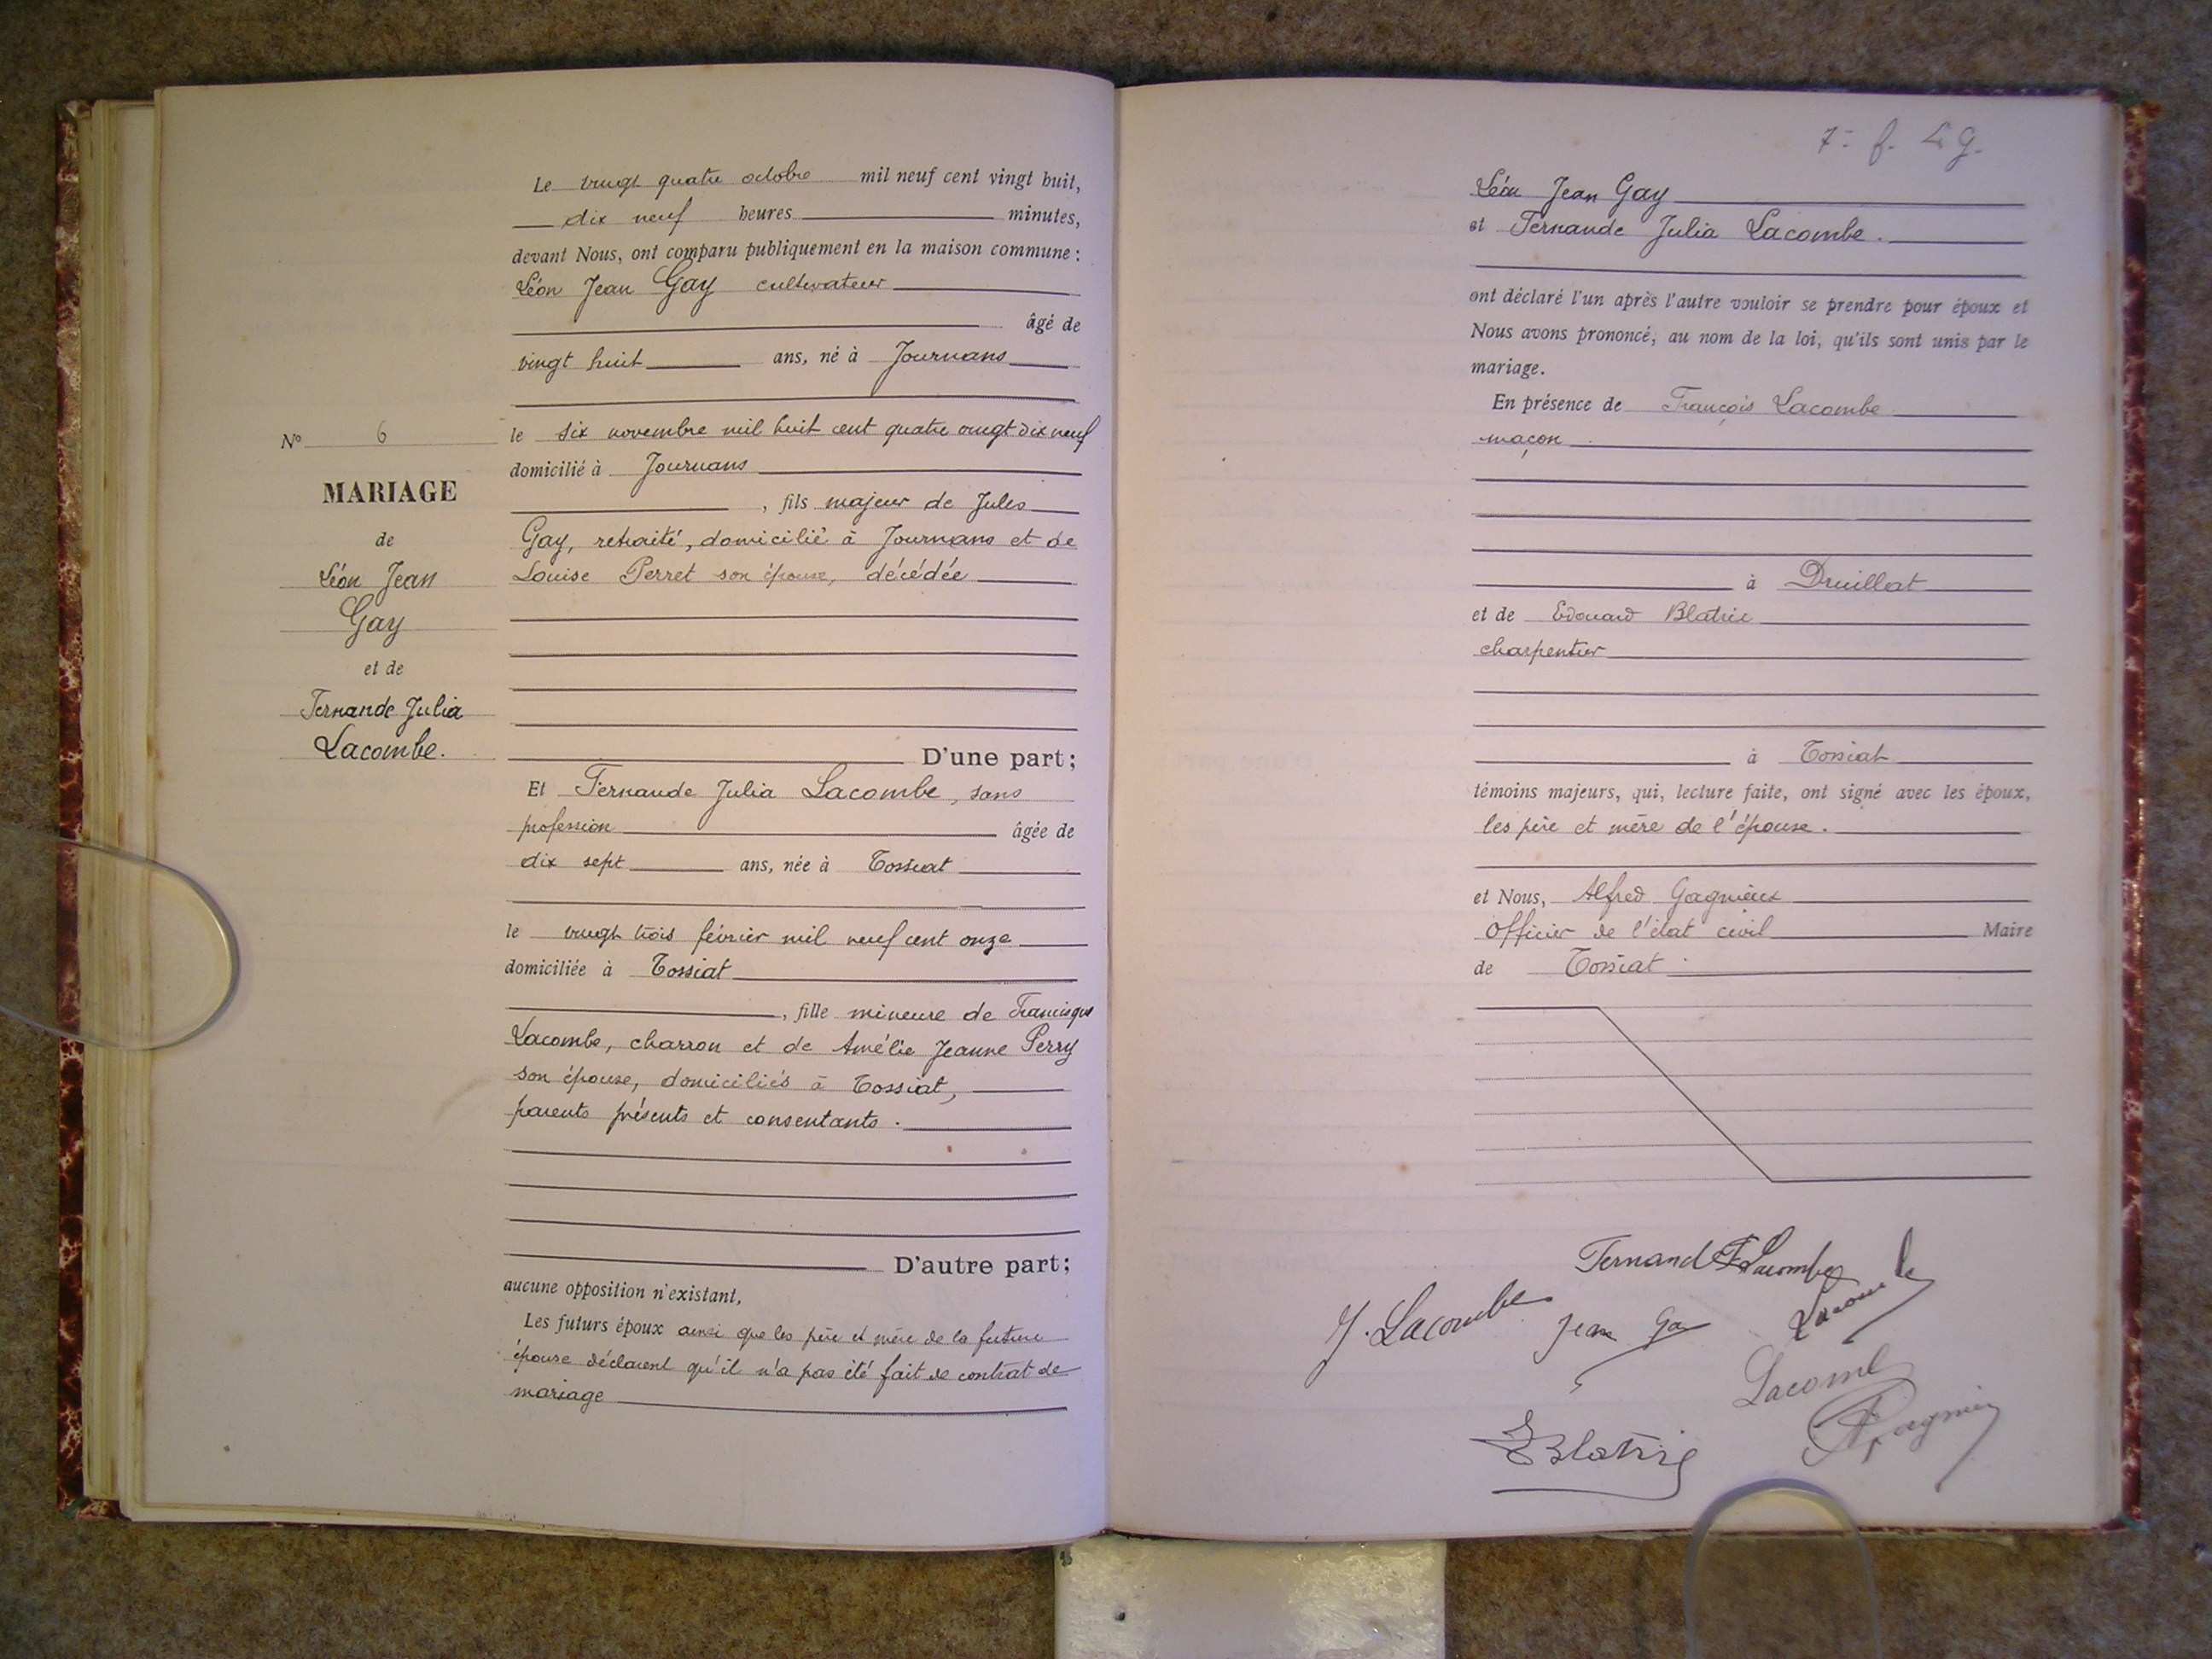 Le vingt quatre octobre mil neuf cent vingt huit,
dix neuf heures minutes,
devant Nous, ont comparu publiquement en la maison commune :
Léon Jean Gay cultivateur
âgé de
vingt huit ans, né à Journans
N° 6
le six novembre mil huit cent quatre vingt dix neuf
domicilié à Journans
MARIAGE
, fils majeur de Jules
de
Gay, retraité, domicilié à Journans et de
Léon Jean
Louise Perret son épouse, décédée
Gay
et de
Fernande Julia
Lacombe.
D'une part;
Et Fernande Julia Lacombe, sans
profession âgée de
dix sept ans, née à Tossiat
le vingt trois février mil neuf cent onze
domiciliée à Tossiat
, fille mineure de Francisque
Lacombe, charron et de Amélie Jeanne Perry
son épouse, domiciliés à Tossiat,
parents présents et consentants.
D'autre part;
aucune opposition n'existant,
Les futurs époux ainsi que les père et mère de la future
épouse déclarent qu'il n'a pas été fait de contrat de
mariage
7= f.
Léon Jean Gay
et Fernande Julia Lacombe.
ont déclaré l'un après l'autre vouloir se prendre pour époux et
Nous avons prononcé, au nom de la loi, qu'ils sont unis par le
mariage.
En présence de François Lacombe
maçon
à Druillat
et de Edouard Blatrie
charpentier
à Tossiat
témoins majeurs, qui, lecture faite, ont signé avec les époux,
les père et mère de l'épouse.
et Nous, Alfred Gagnieux
Officier de l'état civil Maire
de Tossiat.
Fernande Lacombe
J. Lacombe
Jean Gay
Lacombe
Lacombe
E Blatrie